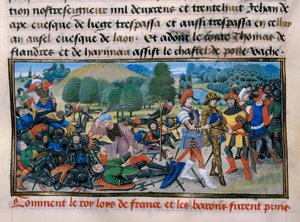 tion nostreseigneur mil deuxens et trentehuit Jehan de
ape euesque de liege trespassa et aussi trespassa en cellui
an ansel euesque de laon. Et adont le conte Thomas de
flandres et de haynnau assist le chastel de poille vache.
Comment le roy loys de france et les barons furent prins